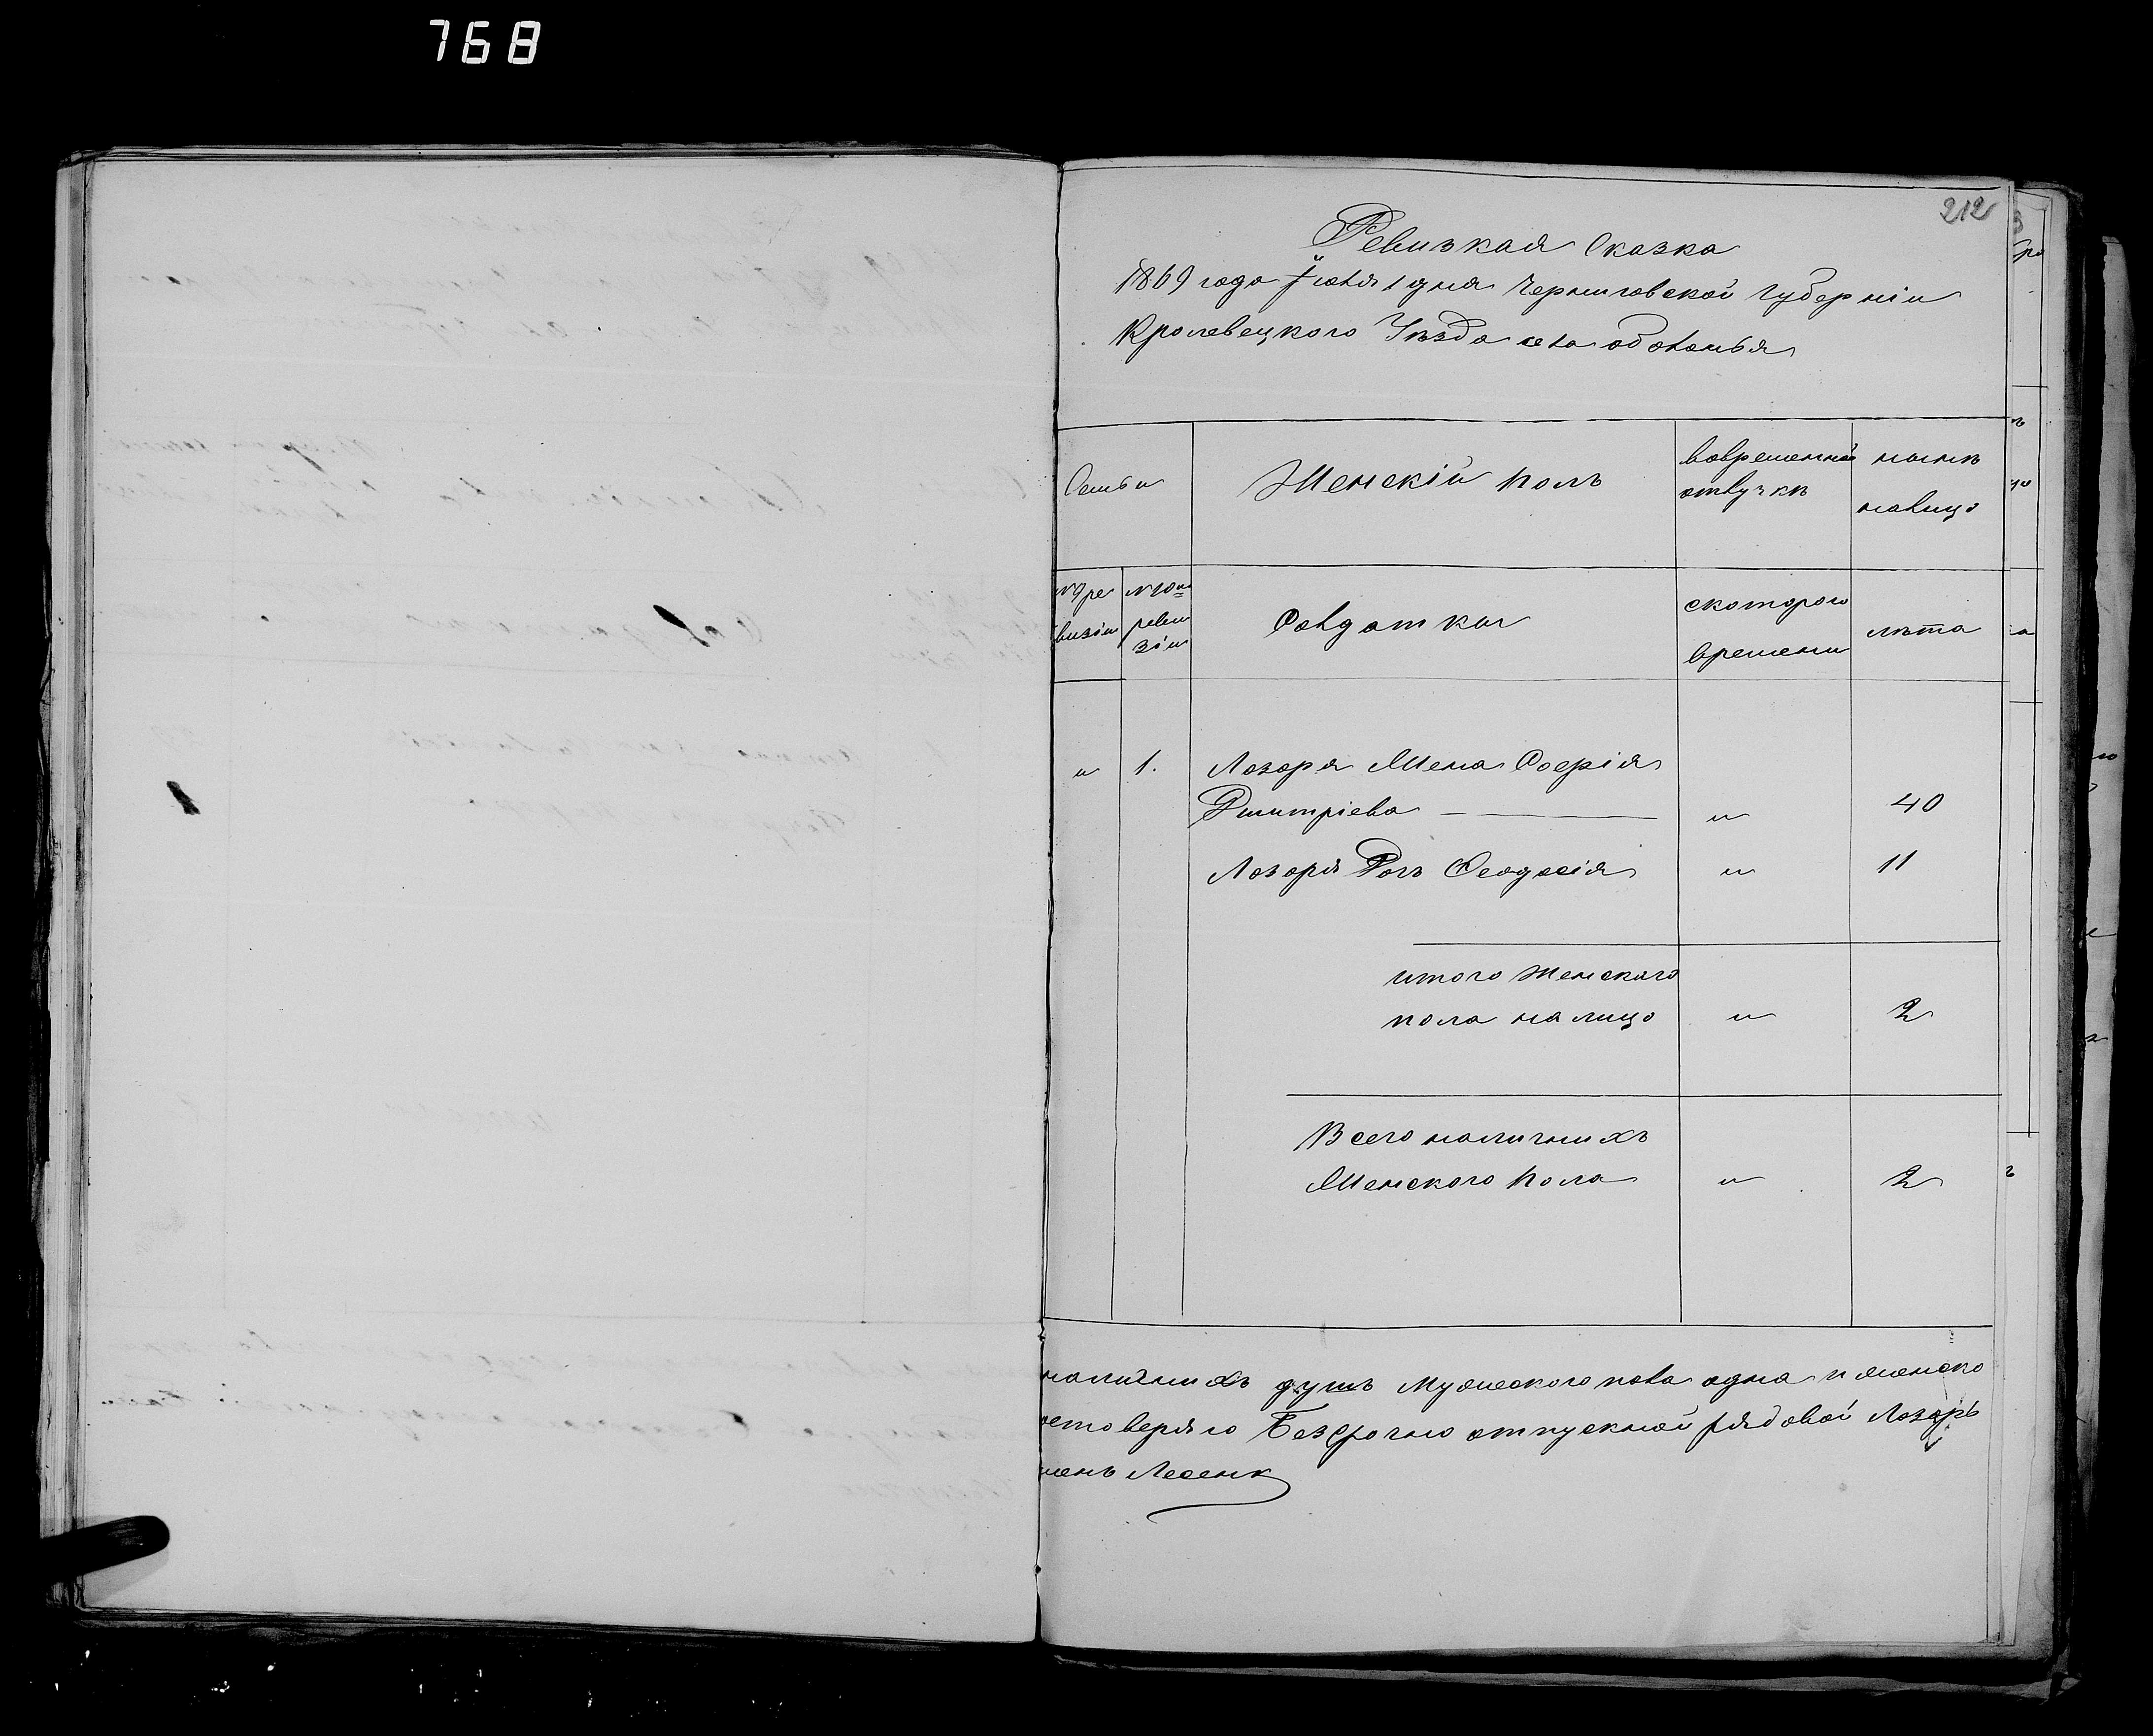 768
212
Ревизкая Сказка
1869 года Июня 1 дня Черниговской Губерніи
Кролевецкого Уезда села Оболонья
Семьи
Женскій полъ
вовременной отлучкѣ
нынѣ налицо
№ 9 ре визіи
№ 10й реви зіи
Солдатки
скоторого времени
лѣта
" 1. Лозаря Жена Софія
Дмитріева " 40
Лозаря Доч Феодосія " 11
итого Женского
пола налицо " 2
Всего наличнихъ
Женского пола " 2
наличнихъ душъ Мужеского пола одна и женско
Безсрочно отпускной рядовой Лозарь
Лесенк